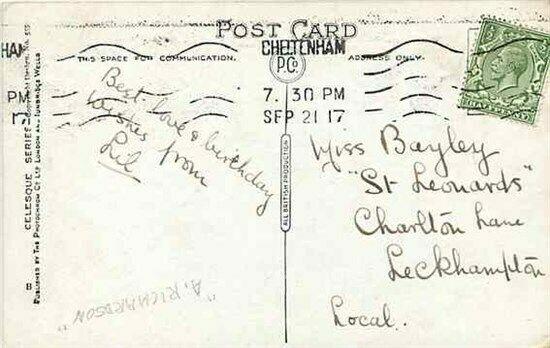 POST CARD
THIS SPACE FOR COMMUNICATION.
ADDRESS ONLY.
HAM
PM
17
CHELTENHAM
7.30 PM
SEP 21 17
Best love & birthday
Wishes from
Lil
Miss Bayley
"St Leonards"
Charlton Lane
Leckhampton
Local.
"A. RICHARDSON"
CELESQUE SERIES
PUBLISHED BY THE PHOTOCHROM CO LTD LONDON AND TUNBRIDGE WELLS
B
P.Co
ALL BRITISH PRODUCTION